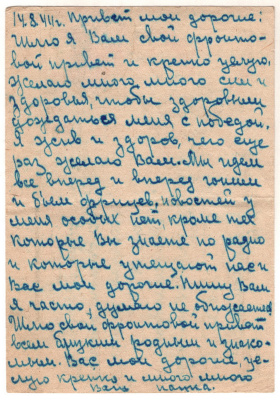 14.8.44г. Привет мои дорогие!
Шлю я Вам свой фронто-
вой привет и крепко целую.
Желаю много, много сил и
здоровья, чтобы здоровыми
дождаться меня с победой.
Я жив и здоров, чего еще
раз желаю Вам. Мы идем
все вперед и вперед гоним
и бьем фрицев, новостей у
меня особых нет, кроме тех
которые Вы знаете по радио
и которые утешают нас и
Вас мои дорогие. Пишу Вам
я часто, думаю не обижаетесь
Шлю свой фронтовой привет
всем близким родным и знако-
мым. Вас, мои дорогие, це-
лую крепко и много, много
Ваш папка.